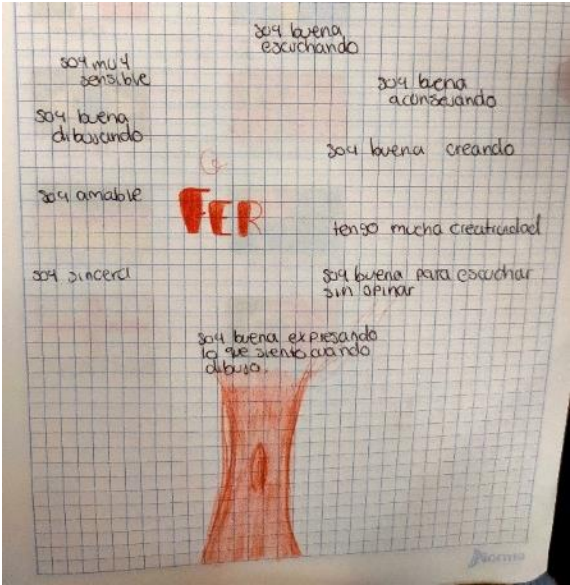 soy buena
escuchando
soy muy
sensible
soy buena
aconsejando
soy buena
dibujando
soy buena creando
soy amable
FER
tengo mucha creatividad
soy sincera
soy buena para escuchar
sin opinar
soy buena expresando
lo que siento cuando
dibujo.
Norma